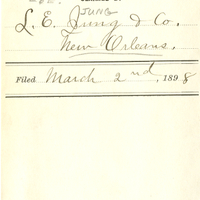 L. E. Jung & Co.
JUNG
New Orleans.
Filed March 2nd, 1898